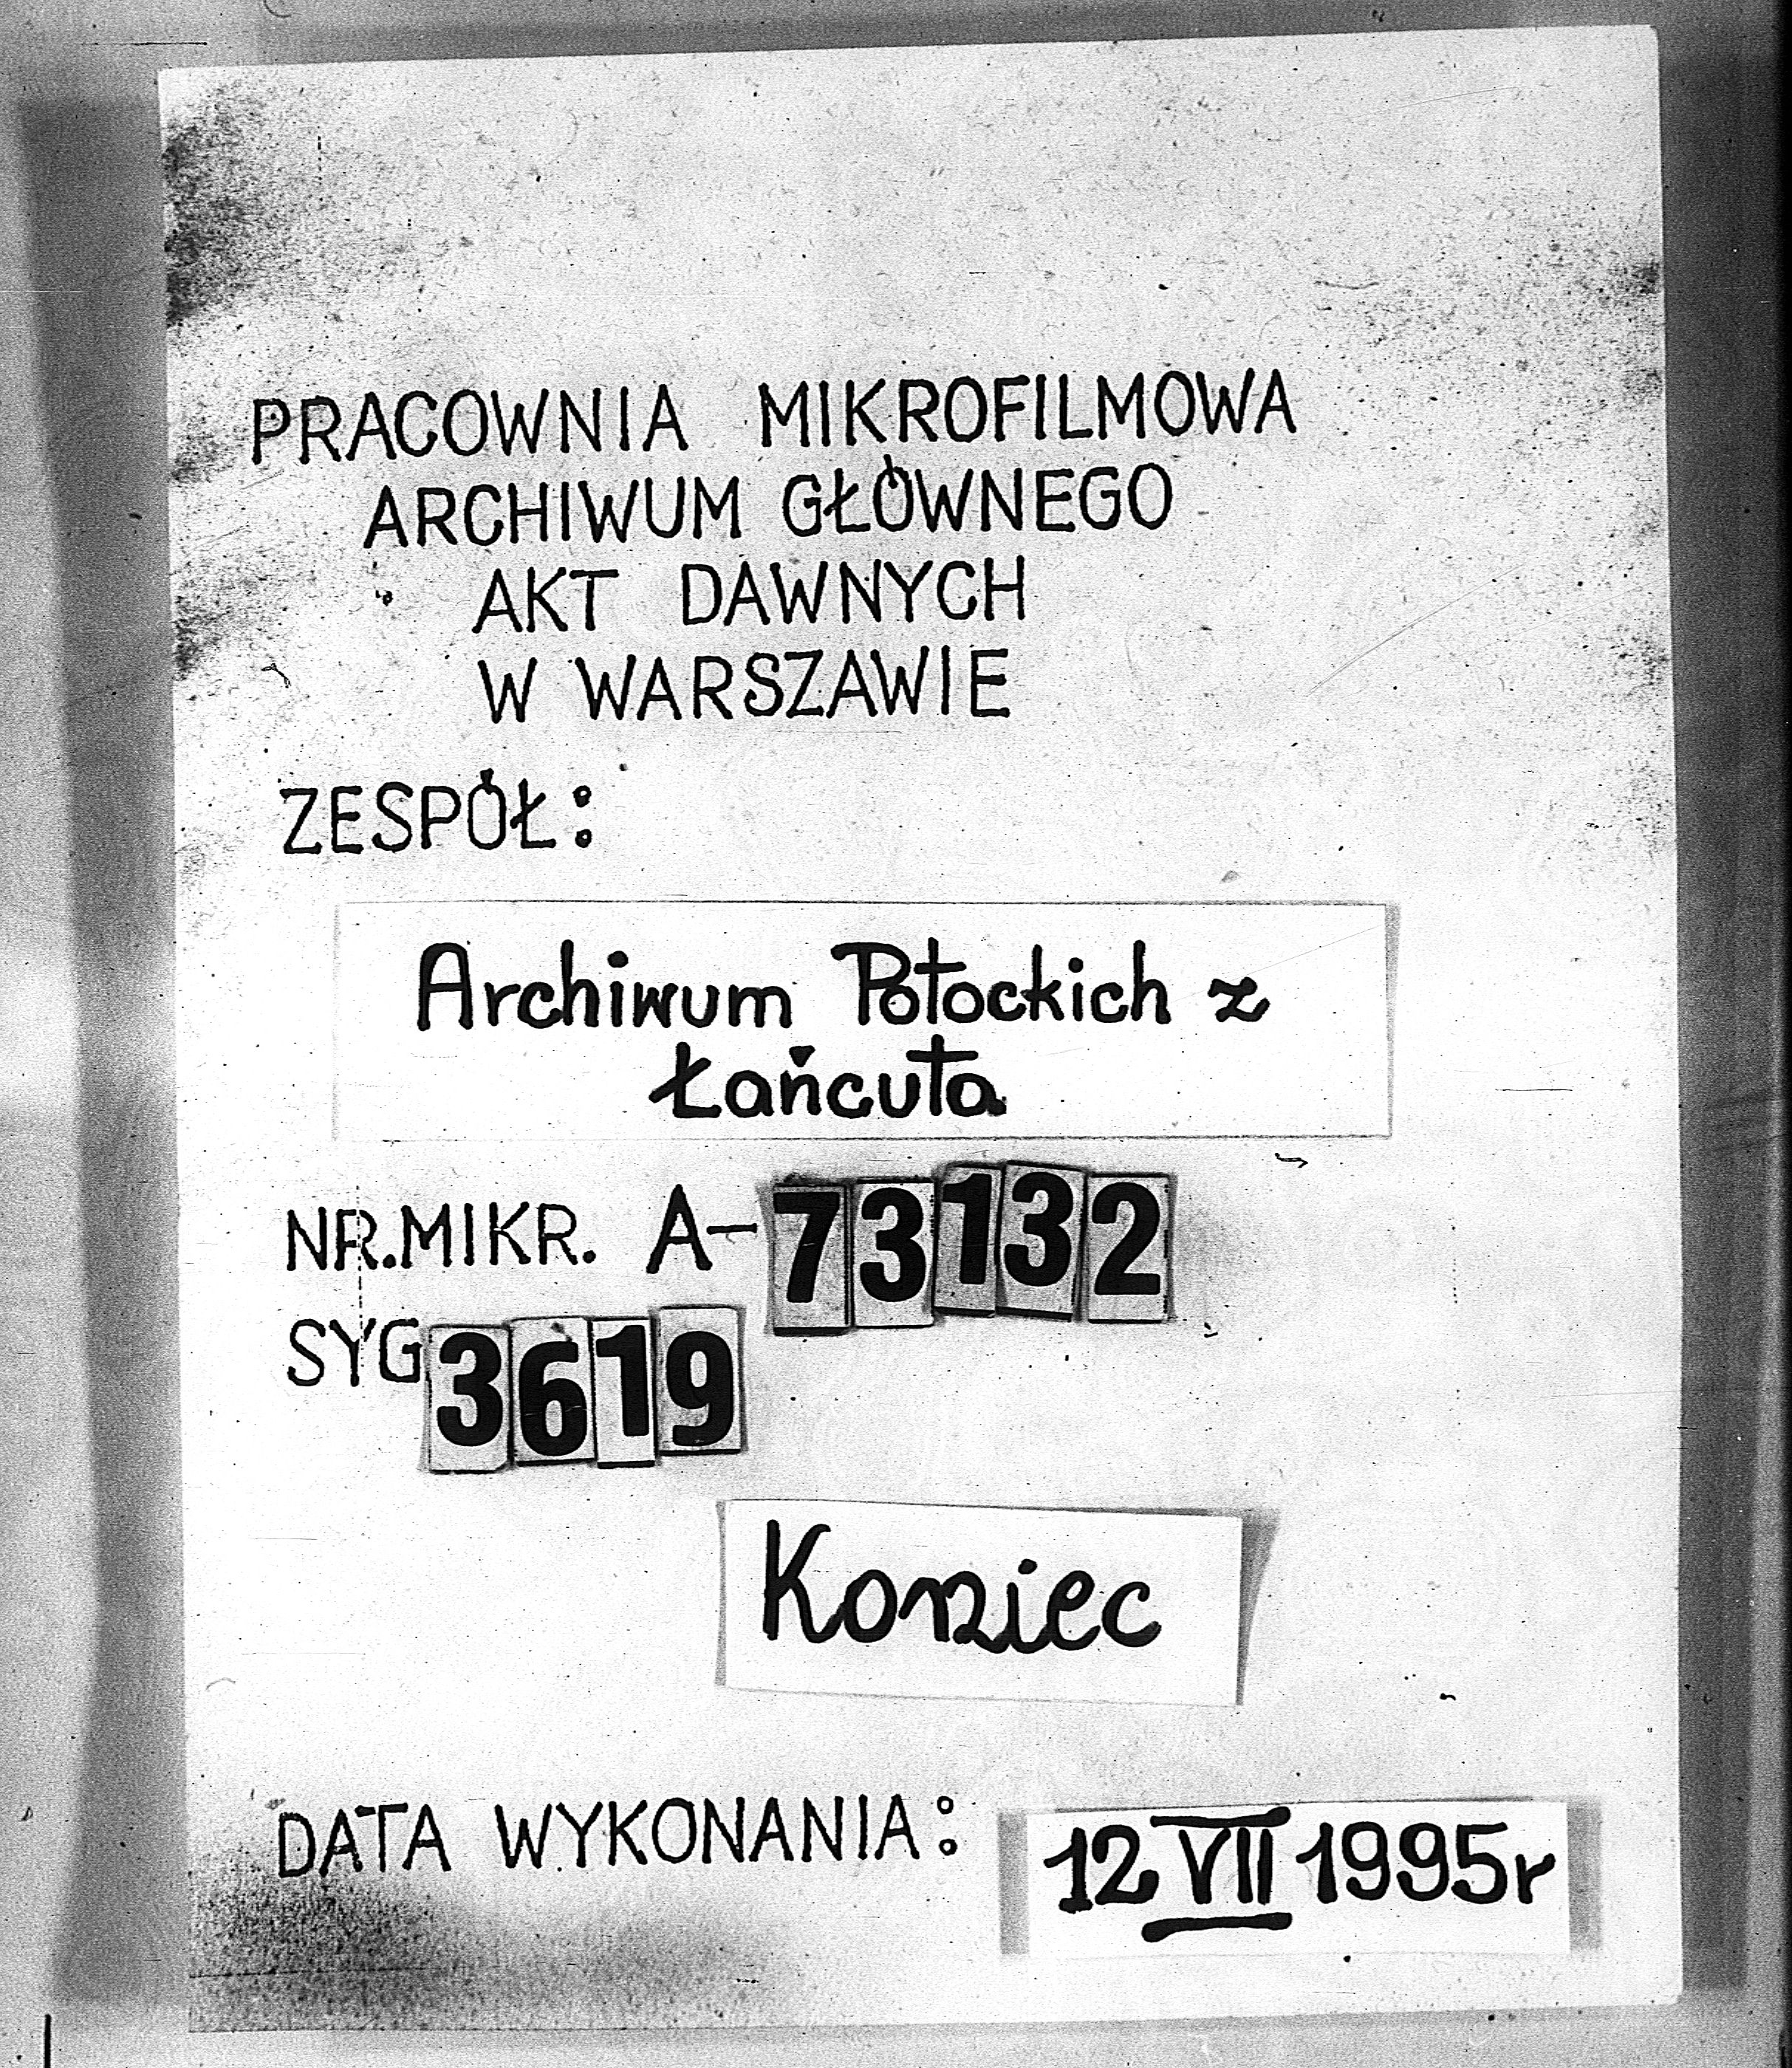 PRACOWNIA MIKROFILMOWA
ARCHIWUM GŁÓWNEGO
AKT DAWNYCH
W WARSZAWIE
ZESPÓŁ:
Archiwum Potockich z
Łańcuta
NR.MIKR. A-73132
SYG 3619
Koniec
DATA WYKONANIA: 12 VII 1995r